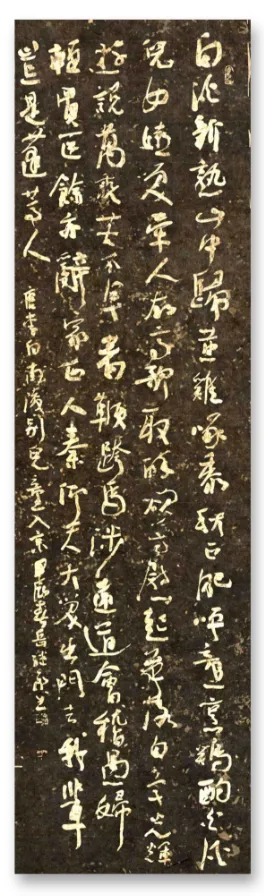 白酒新熟山中歸黃雞啄黍秋正肥呼童烹鷄酌白酒
兒女嬉笑牽人衣高歌取醉欲自慰起舞落日爭光輝
遊說萬乘苦不早著鞭跨馬涉遠道會稽愚婦
輕買臣餘亦辭家西入秦仰天大笑出門去我輩
豈是蓬蒿人 唐李白南陵別兒童入京 甲辰春